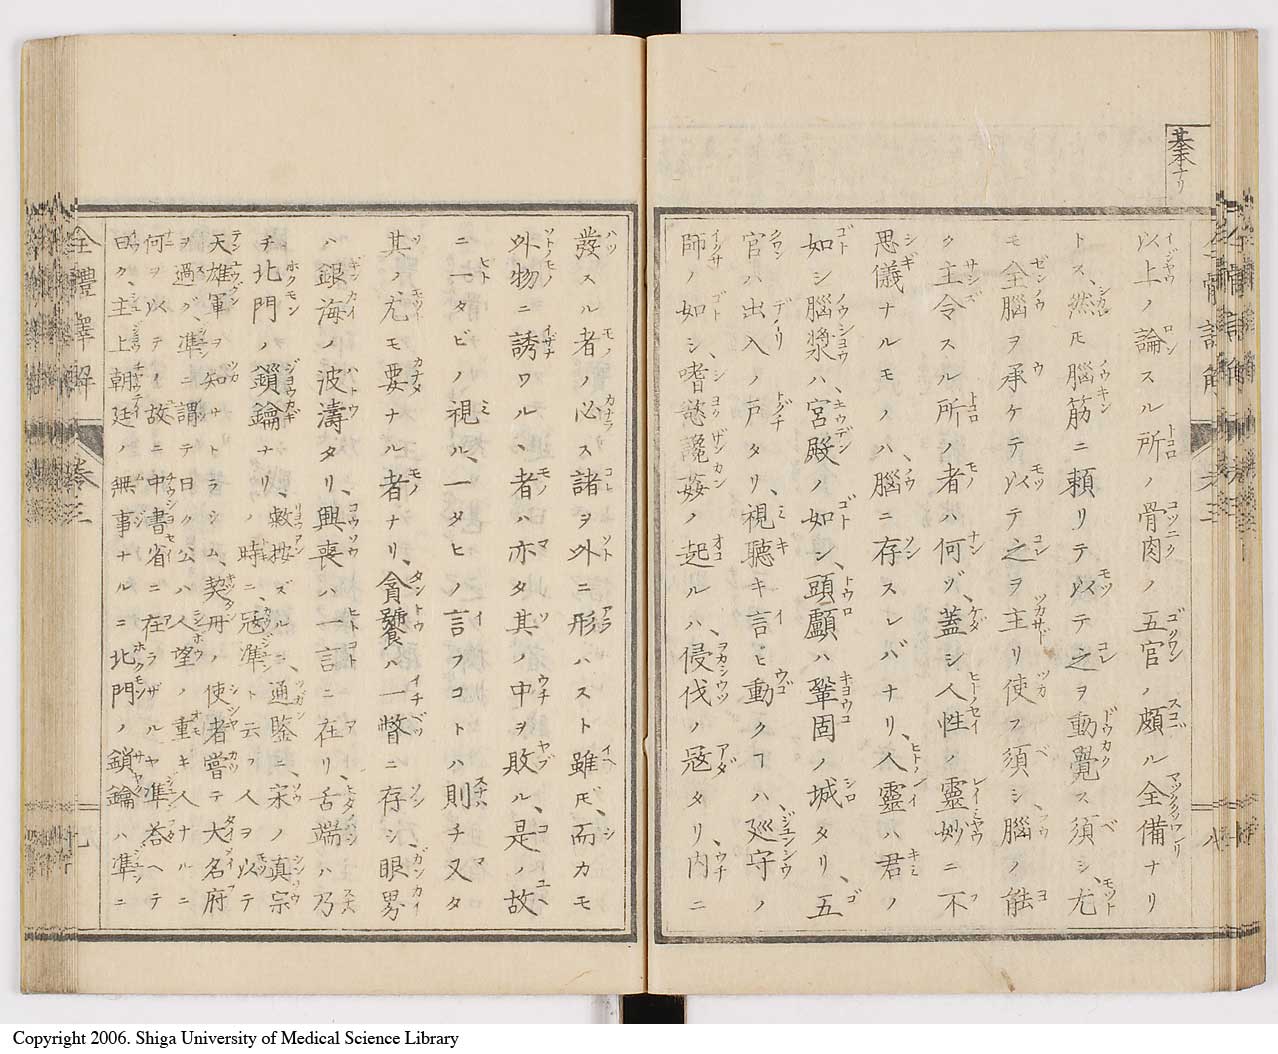 基本ナリ
以上ノ論スル所ノ骨肉ノ五官ノ頗ル全備ナリ
トス、然ㇳモ腦筋ニ頼リテ以テ之ヲ動覺ス須シ、尤
モ全腦ヲ承ケテ以テ之ヲ主リ使フ須シ、腦ノ能
ク主令スル所ノ者ハ何ゾ、蓋シ人性ノ靈妙ニ不
思儀ナルモノハ腦ニ存スレバナリ、人靈ハ君ノ
如シ腦漿ハ、宮殿ノ如シ、頭顱ハ鞏固ノ城タリ、五
官ハ出入ノ戸タリ、視聴キ言ヒ動クヿハ、廵守ノ
師ノ如シ、嗜慾讒姦ノ起ルハ、侵伐ノ冦タリ、内ニ
發スル者ノ必ス諸ヲ外ニ形ハスト雖ㇳモ、而カモ
外物ニ誘ワルヽ者ハ亦タ其ノ中ヲ敗ル、是ノ故
ニ一タビノ視ル、一タヒノ言フコトハ則チ又タ
其ノ尤モ要ナル者ナリ、貪饕ハ一瞥ニ存シ眼界
ハ銀海ノ波濤タリ、興喪ハ一言ニ在リ、舌端ハ乃
チ北門ノ鎖鑰ナリ、
救按ズルニ、通鑒ニ、宋ノ真宗
ノ時ニ冦準ト云フ人ヲ以テ
天雄軍ヲ知サトラシム、契丹ノ使者嘗テ大名府
ヲ過グ、準ニ謂テ曰ク公ハ人望ノ重キ人ナルニ
何ヲ以テノ故ニ中書省ニ在ラザルヤ、準荅ヘテ
曰ク、主上朝廷ノ無事ナルニ北門ノ鎖鑰ハ準ニ
全體譯解 卷三
八
九
Copyright 2006. Shiga University of Medical Science Library